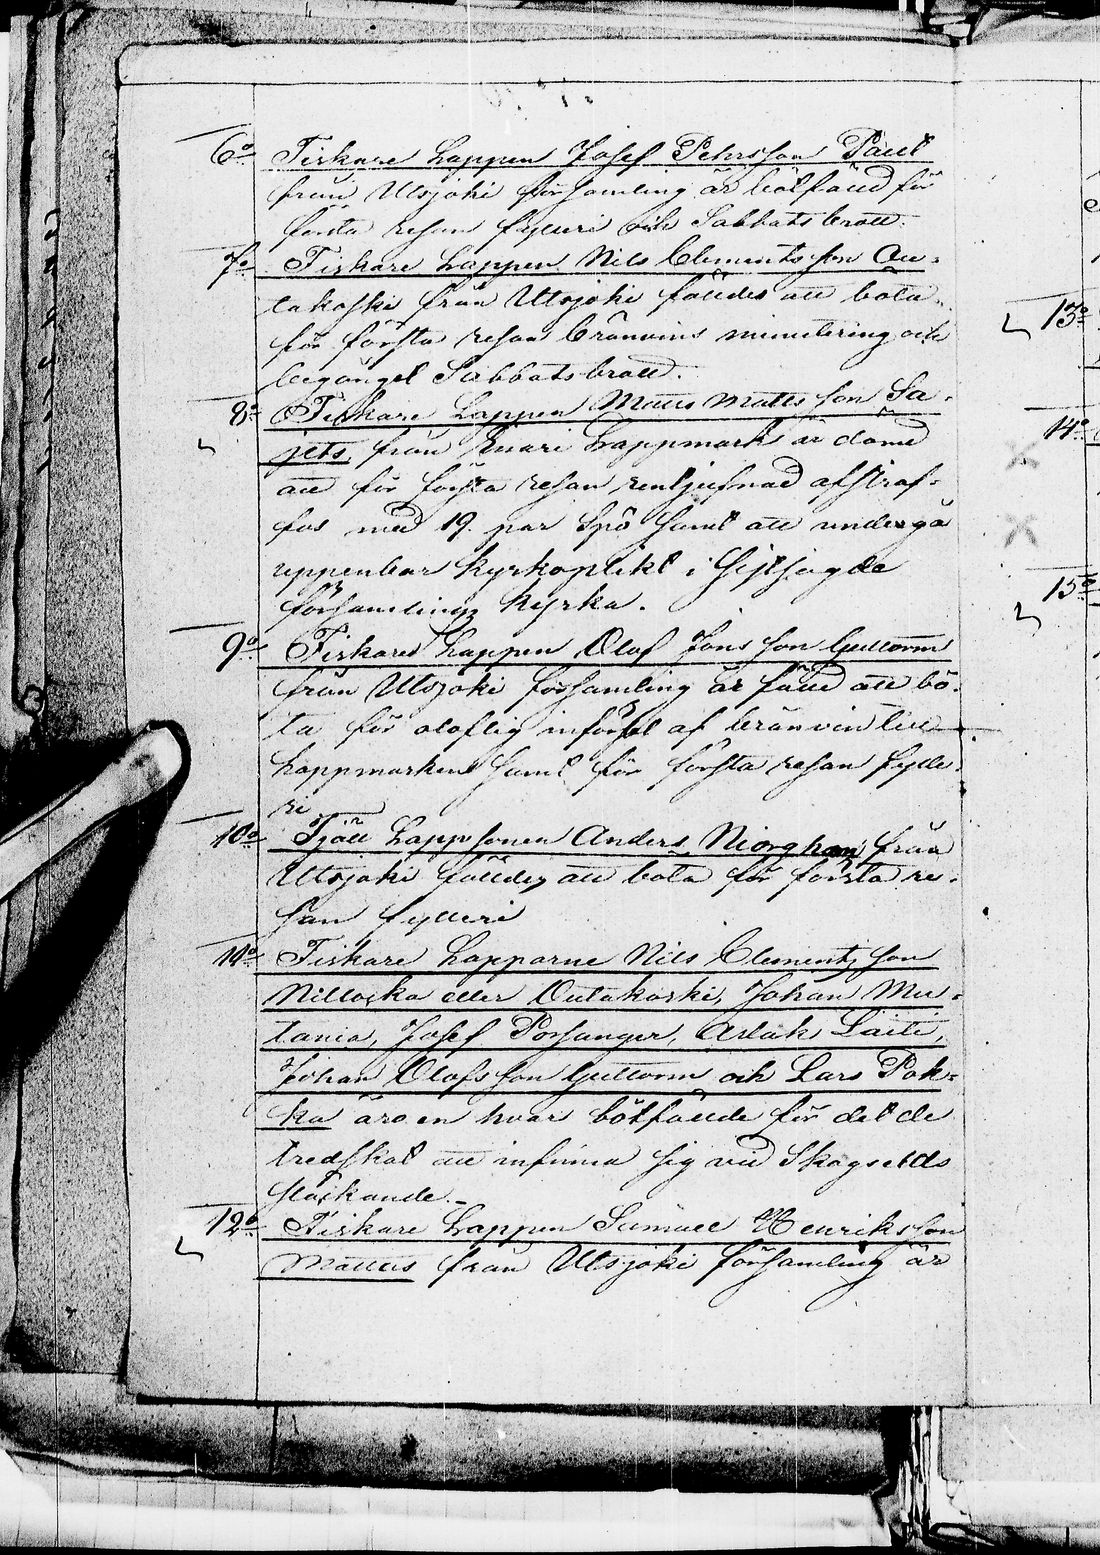 6o Fiskare Lappen Josef Pehrsson Paul
från Utsjoki församling är bötfäld för
första resan fylleri och Sabbatsbrott.
7o Fiskare Lappen Nils Clementsson Au-
takoski från Utsjoki fälldes att böta
för första resan bränvins minutering och
begånget Sabbatsbrott.
8o Fiskare Lappen Matts Mattsson Sa-
jets, från Enare Lappmark är dömd
att för första resan rentjufnad afstraf-
fas med 19 par Spö samt att undergå
uppenbar Kyrkoplikt i
församlings Kyrka.
9o Fiskare Lappen Olof Jonsson Guttorm
från Utsjoki församling är fälld att bö-
ta för oloflig införsel af bränvin till
Lappmarken samt för första resan fylle-
ri
10o Fjäll Lappsonen Anders Niorgham från
Utsjoki fälldes att böta för första re-
san fylleri
11o Fiskare Lapparne Nils Clementsson
Nilloska eller Outakoski, Johan Mu-
tania, Josef Porsanger, Aslak Laiti,
Johan Olofsson Guttorm och Lars Pok-
ka äro en hvar bötfällde för det de
tredskat att infinna sig vid Skogselds
släckande.
12o Fiskare Lappen Samuel Henriksson
Mattus från Utsjoki församling är
13o
14o
15o